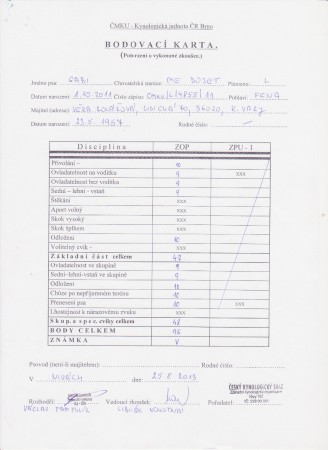 ČMKU - Kynologická jednota ČR Brno
BODOVACÍ KARTA.
(Potvrzení o vykonané zkoušce.)
Jméno psa: GABI Chovatelská stanice: Plemeno: L
Datum narození: 1.10.2011 Číslo zápisu: Pohlaví: FENA
Majitel (adresa): 36020, K. VARY
Datum narození: 23.5.1957 Rodné číslo:
Disciplina ZOP ZPU - 1
Přivolání - 10
Ovladatelnost na vodítku 9 xxx
Ovladatelnost bez vodítka 9
Sedni - lehni - vstaň 9
Štěkání xxx
Aport volný xxx
Skok vysoký xxx
Skok šplhem xxx
Odložení 10
Volitelný cvik - xxx
Základní část celkem 47
Ovladatelnost ve skupině 9
Sedni-lehni-vstaň ve skupině 9
Odložení 10
Chůze po nepříjemném terénu 10
Přenesení psa 10 xxx
Lhostejnost k nárazovému zvuku xxx
Skup. a spec. cviky celkem 48
BODY CELKEM 95
ZNÁMKA V
Psovod (není-li majitelem): Rodné číslo:
V NIVÁCH dne: 25.8.2013
Rozhodčí: Vedoucí zkoušek: Pořadatel:
ČESKÝ KYNOLOGICKÝ SVAZ
VÁCLAV LIBUŠE